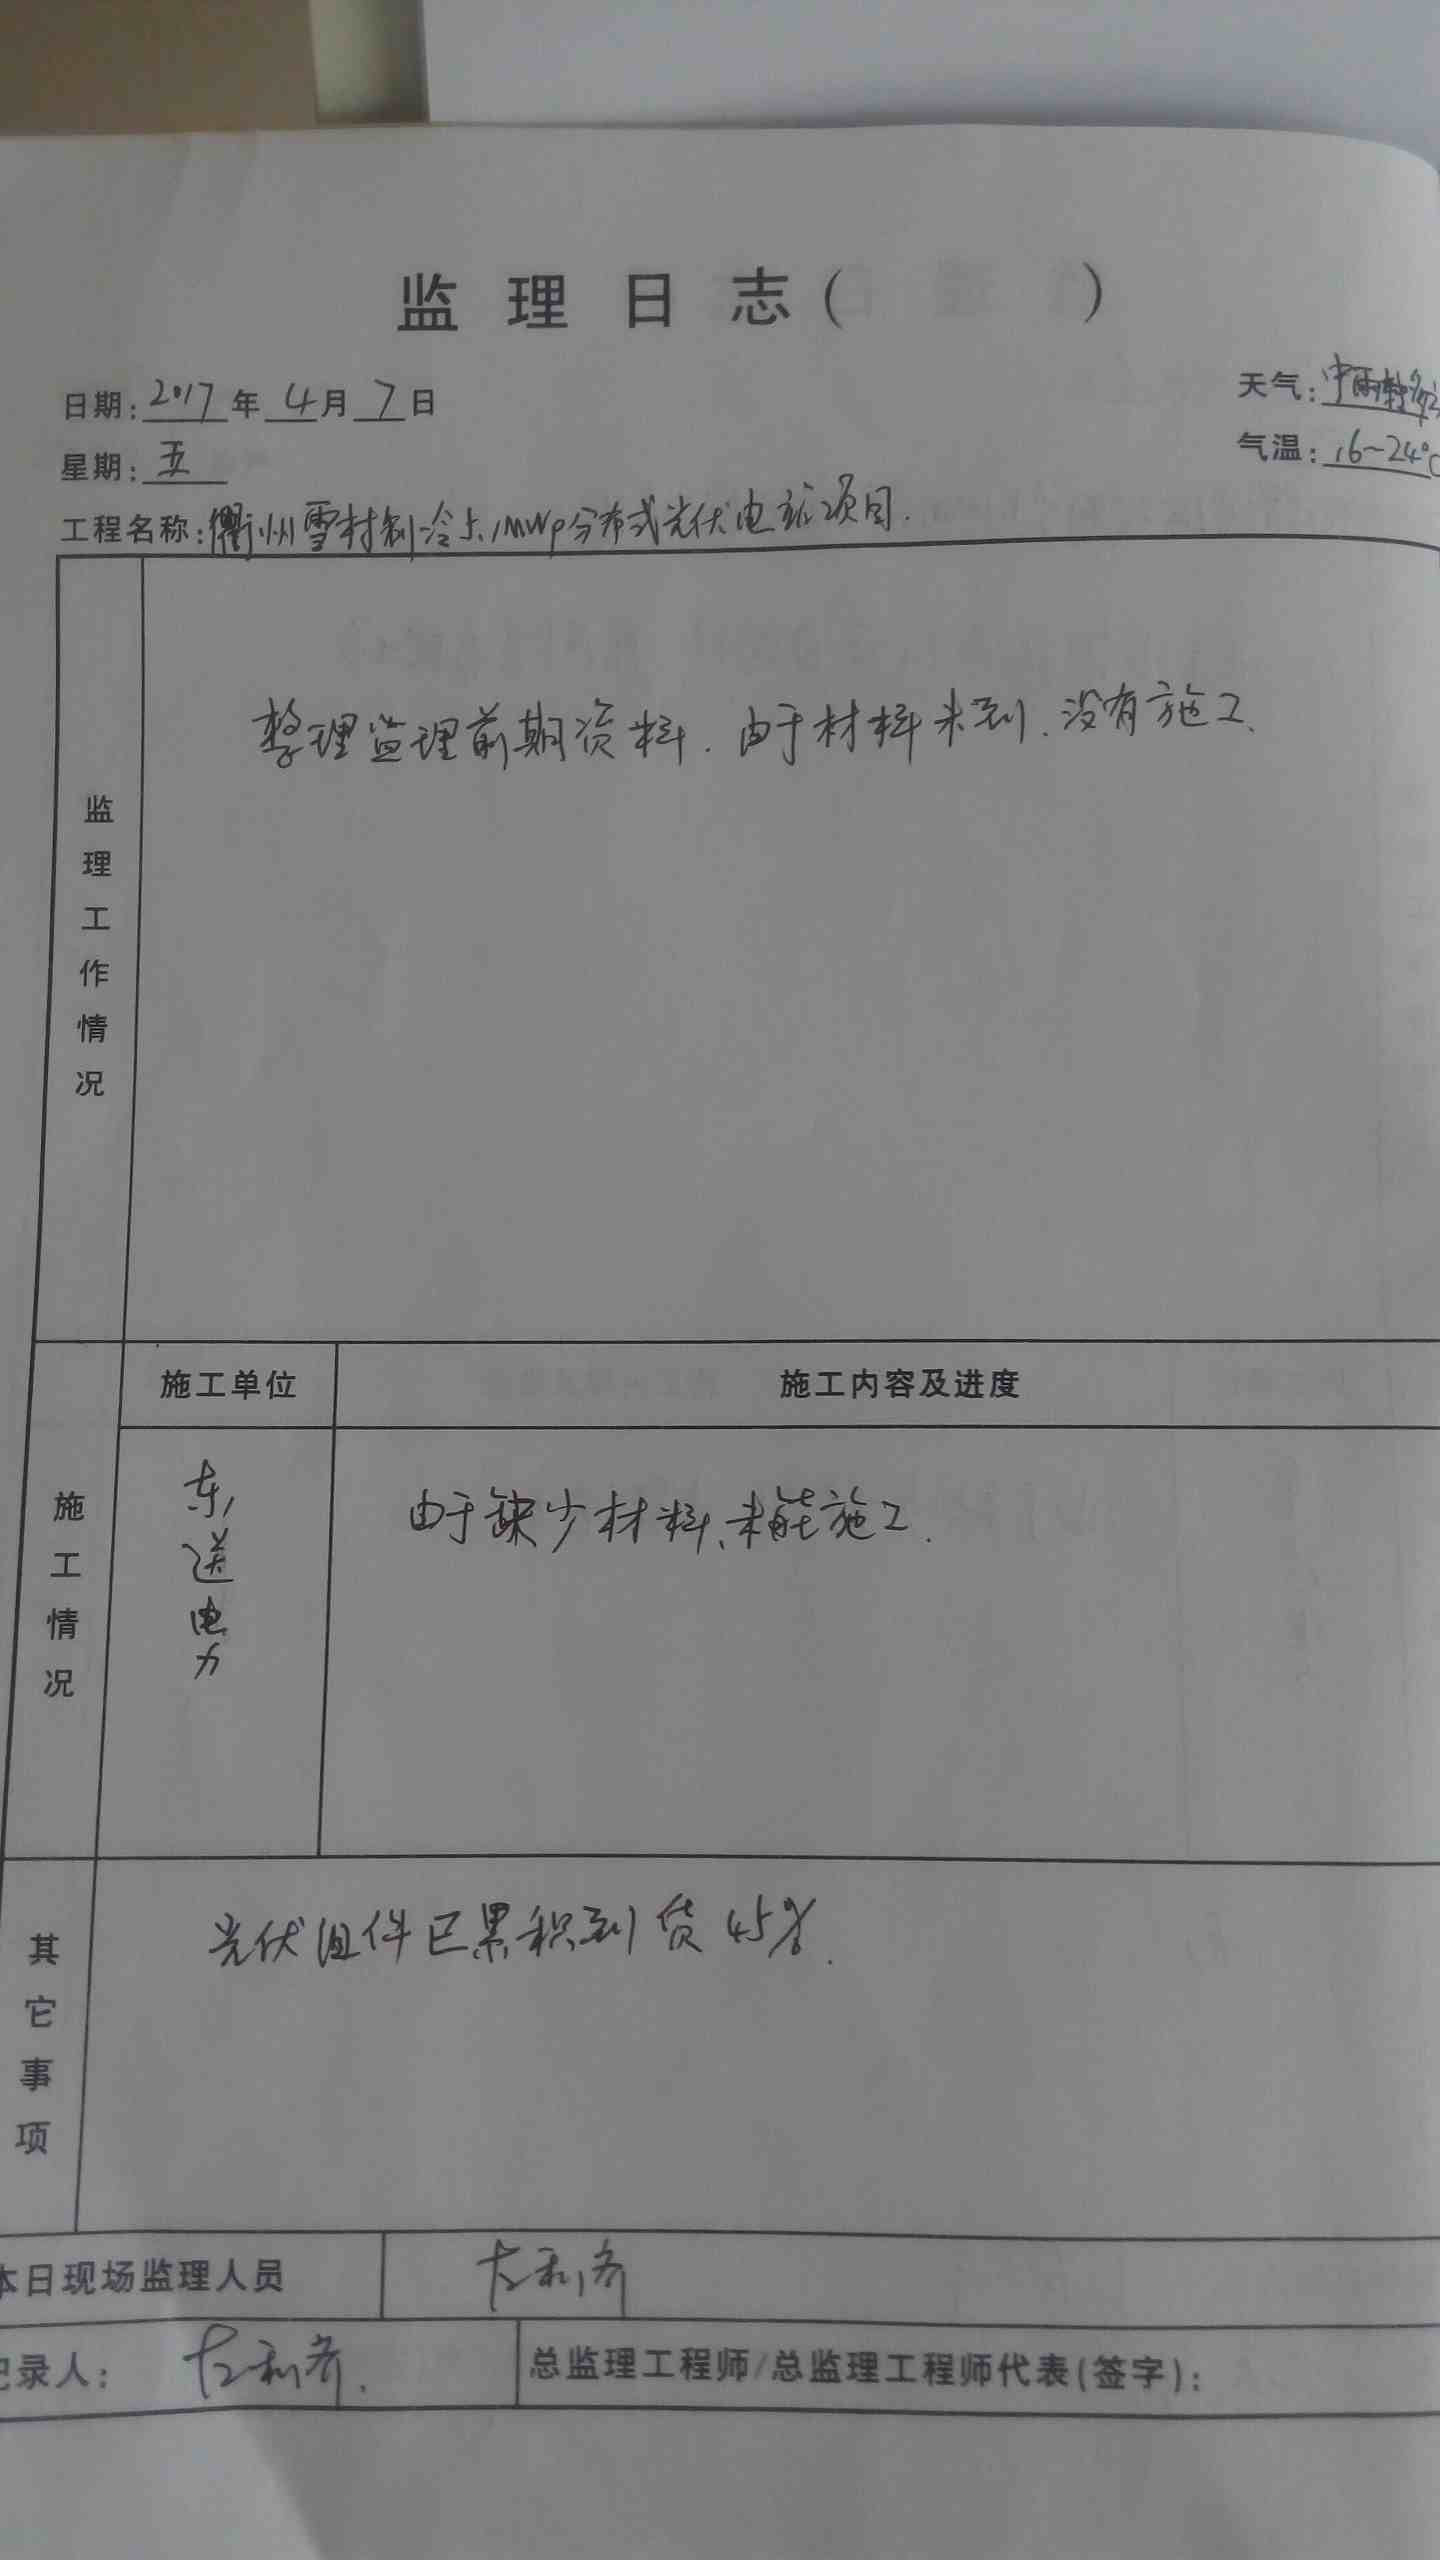 监理日志( )
日期: 2017 年 4 月 7 日
天气: 中雨转
星期: 五
气温: 16~24°C
工程名称: 衢州雪村制冷5.1MWp分布式光伏电站项目.
监理工作情况
整理监理前期资料. 由于材料未到. 没有施工.
施工单位
施工内容及进度
施工情况
东送电力
由于缺少材料、未能施工.
其它事项
光伏组件已累积到货45%.
本日现场监理人员
记录人:
总监理工程师/总监理工程师代表(签字):